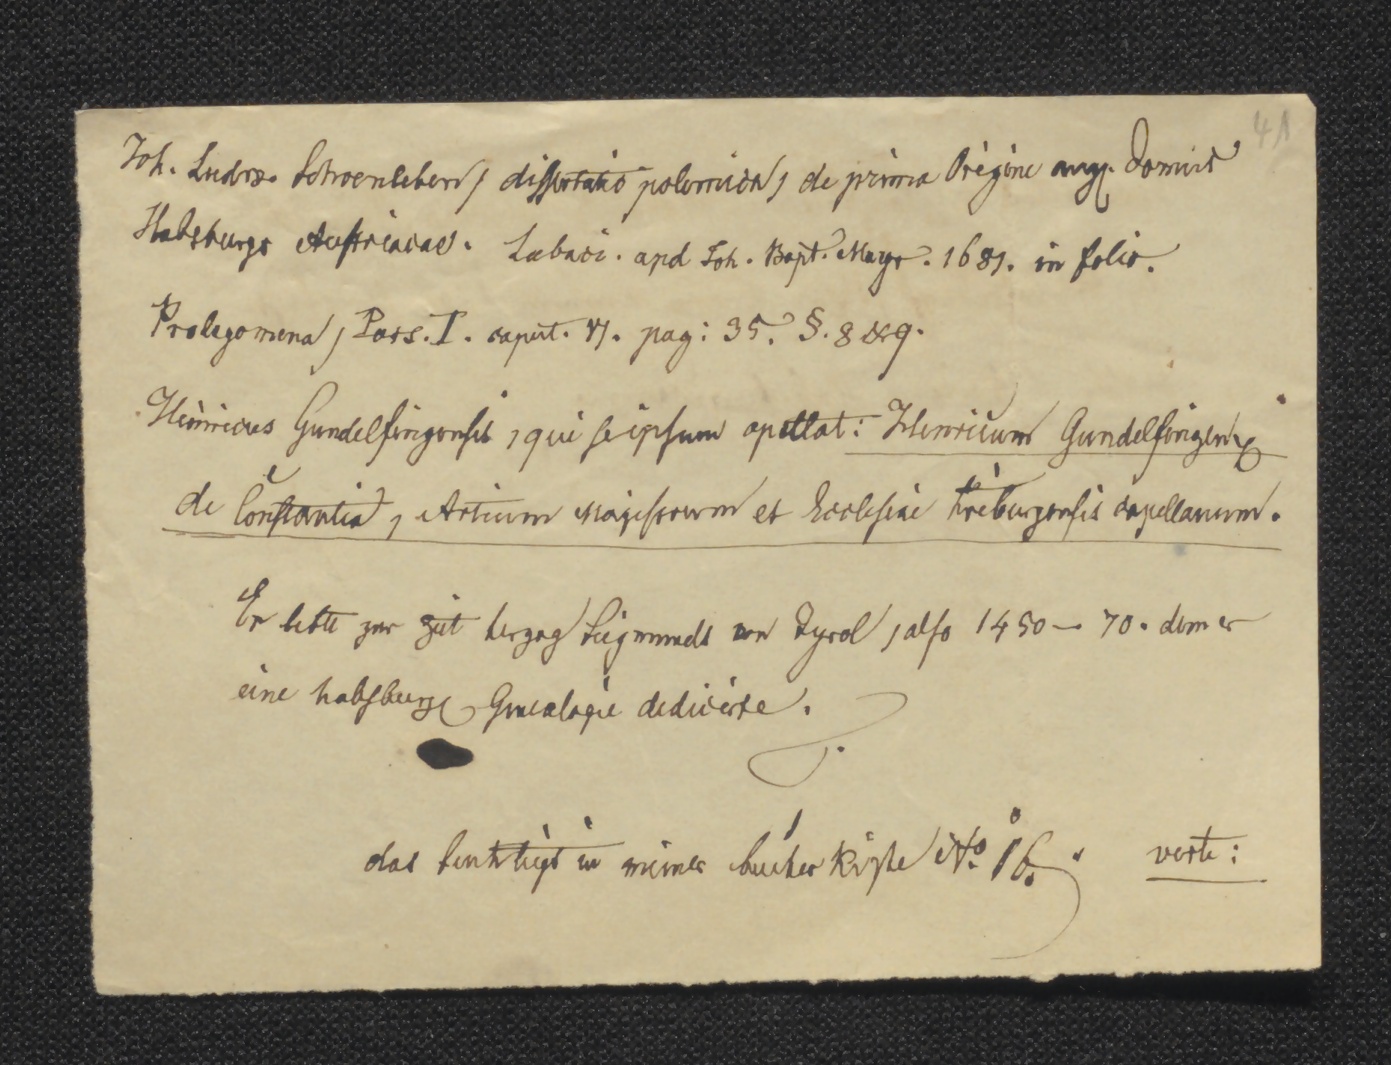 41
Joh. Ludov. Schoenleben, dissertatio polemica, de prima Origine aug. Domus
Habsburgo Austriacae. Labaci. apd Joh. Bapt. Mayr. 1681. in folio.
Prolegomena, Pars. I. caput. VI. pag: 35. §. 8 & 9.
Heinricus Gundelfingensis, qui se ipsum apellat: Henricum Gundelfingen
de Constantia, Artium Magistrum et Ecclesiae Friburgensis capellanum.
Er lebte zur Zeit herzog Siegmunds von Tyrol, also 1450 – 70. dem er
eine habsburg Genealogie dedicirte.
das buch liegt in meiner bücher Kiste No. 16. verte: